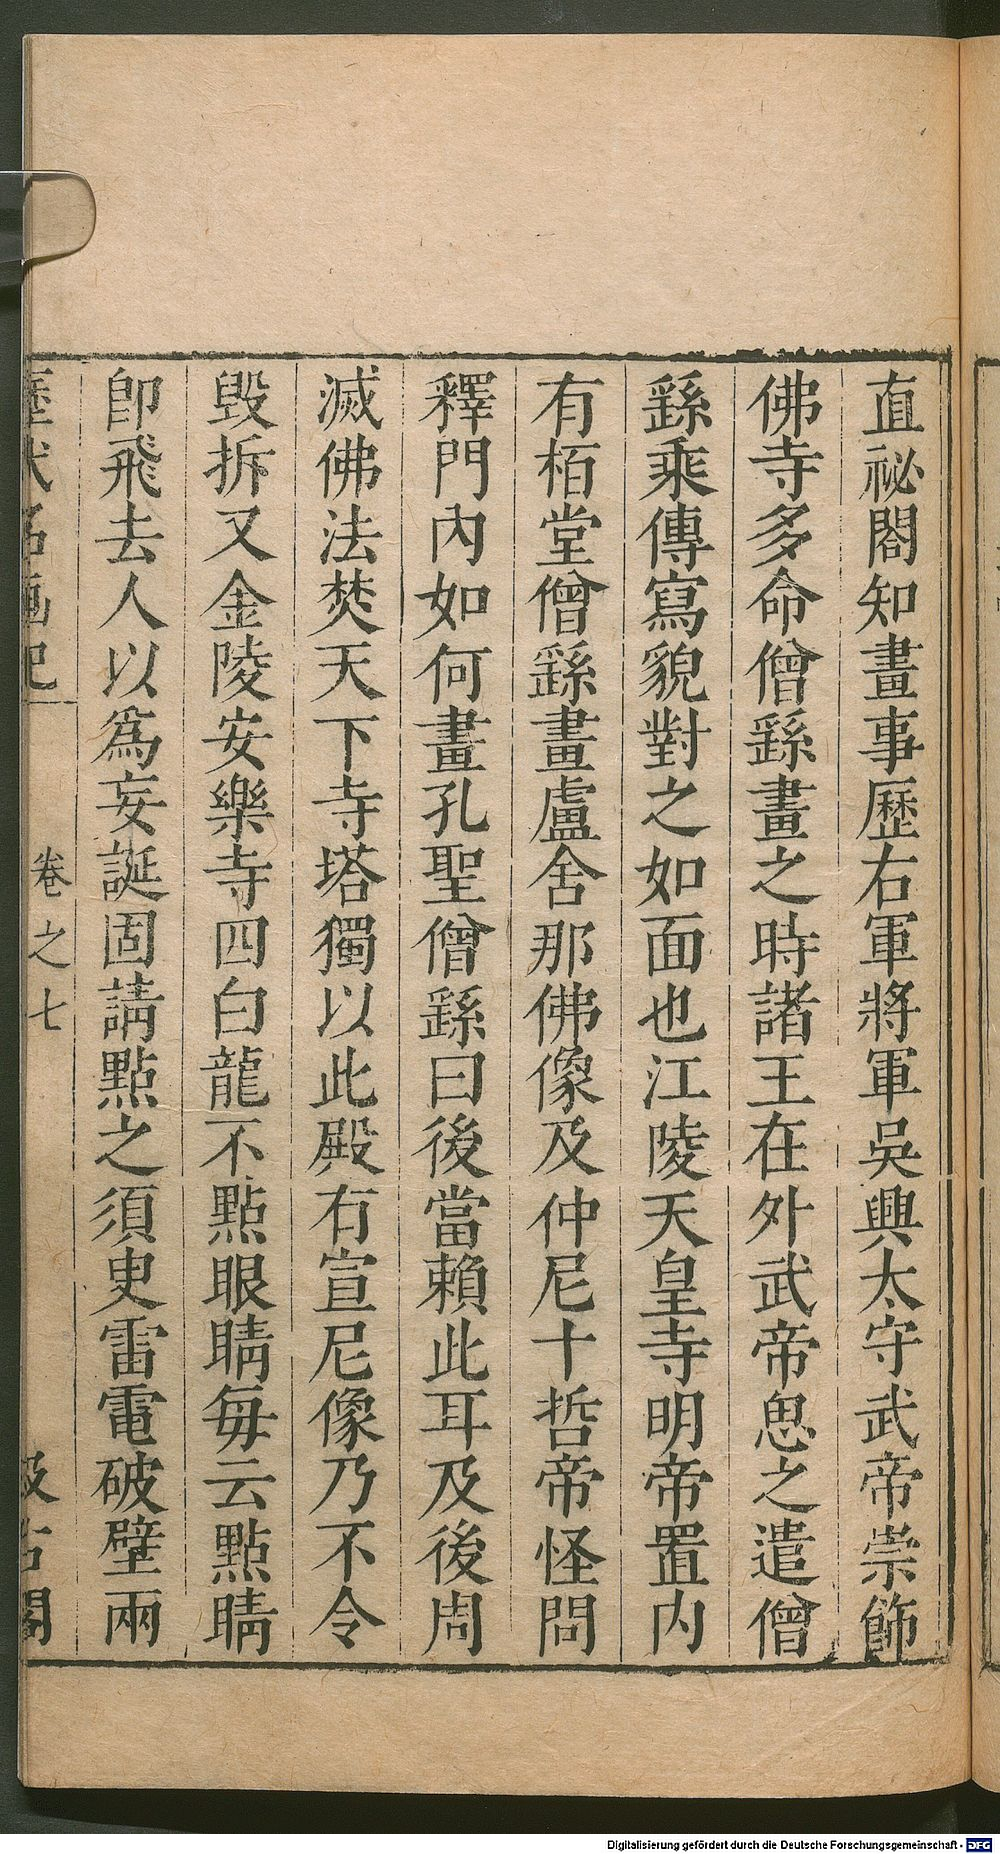 直祕閣知畫事歷右軍將軍吳興太守武帝崇飾
佛寺多命僧繇畫之時諸王在外武帝思之遣僧
繇乘傳寫貌對之如面也江陵天皇寺明帝置内
有栢堂僧繇畫盧舍那佛像及仲尼十哲帝怪問
釋門內如何畫孔聖僧繇曰後當賴此耳及後周
滅佛法焚天下寺塔獨以此殿有宣尼像乃不令
毀拆又金陵安樂寺四白龍不點眼睛每云點睛
卽飛去人以爲妄誕固請點之須臾雷電破壁兩
歷代名畫記 卷之七 汲古閣
Digitalisierung gefördert durch die Deutsche Forschungsgemeinschaft - DFG